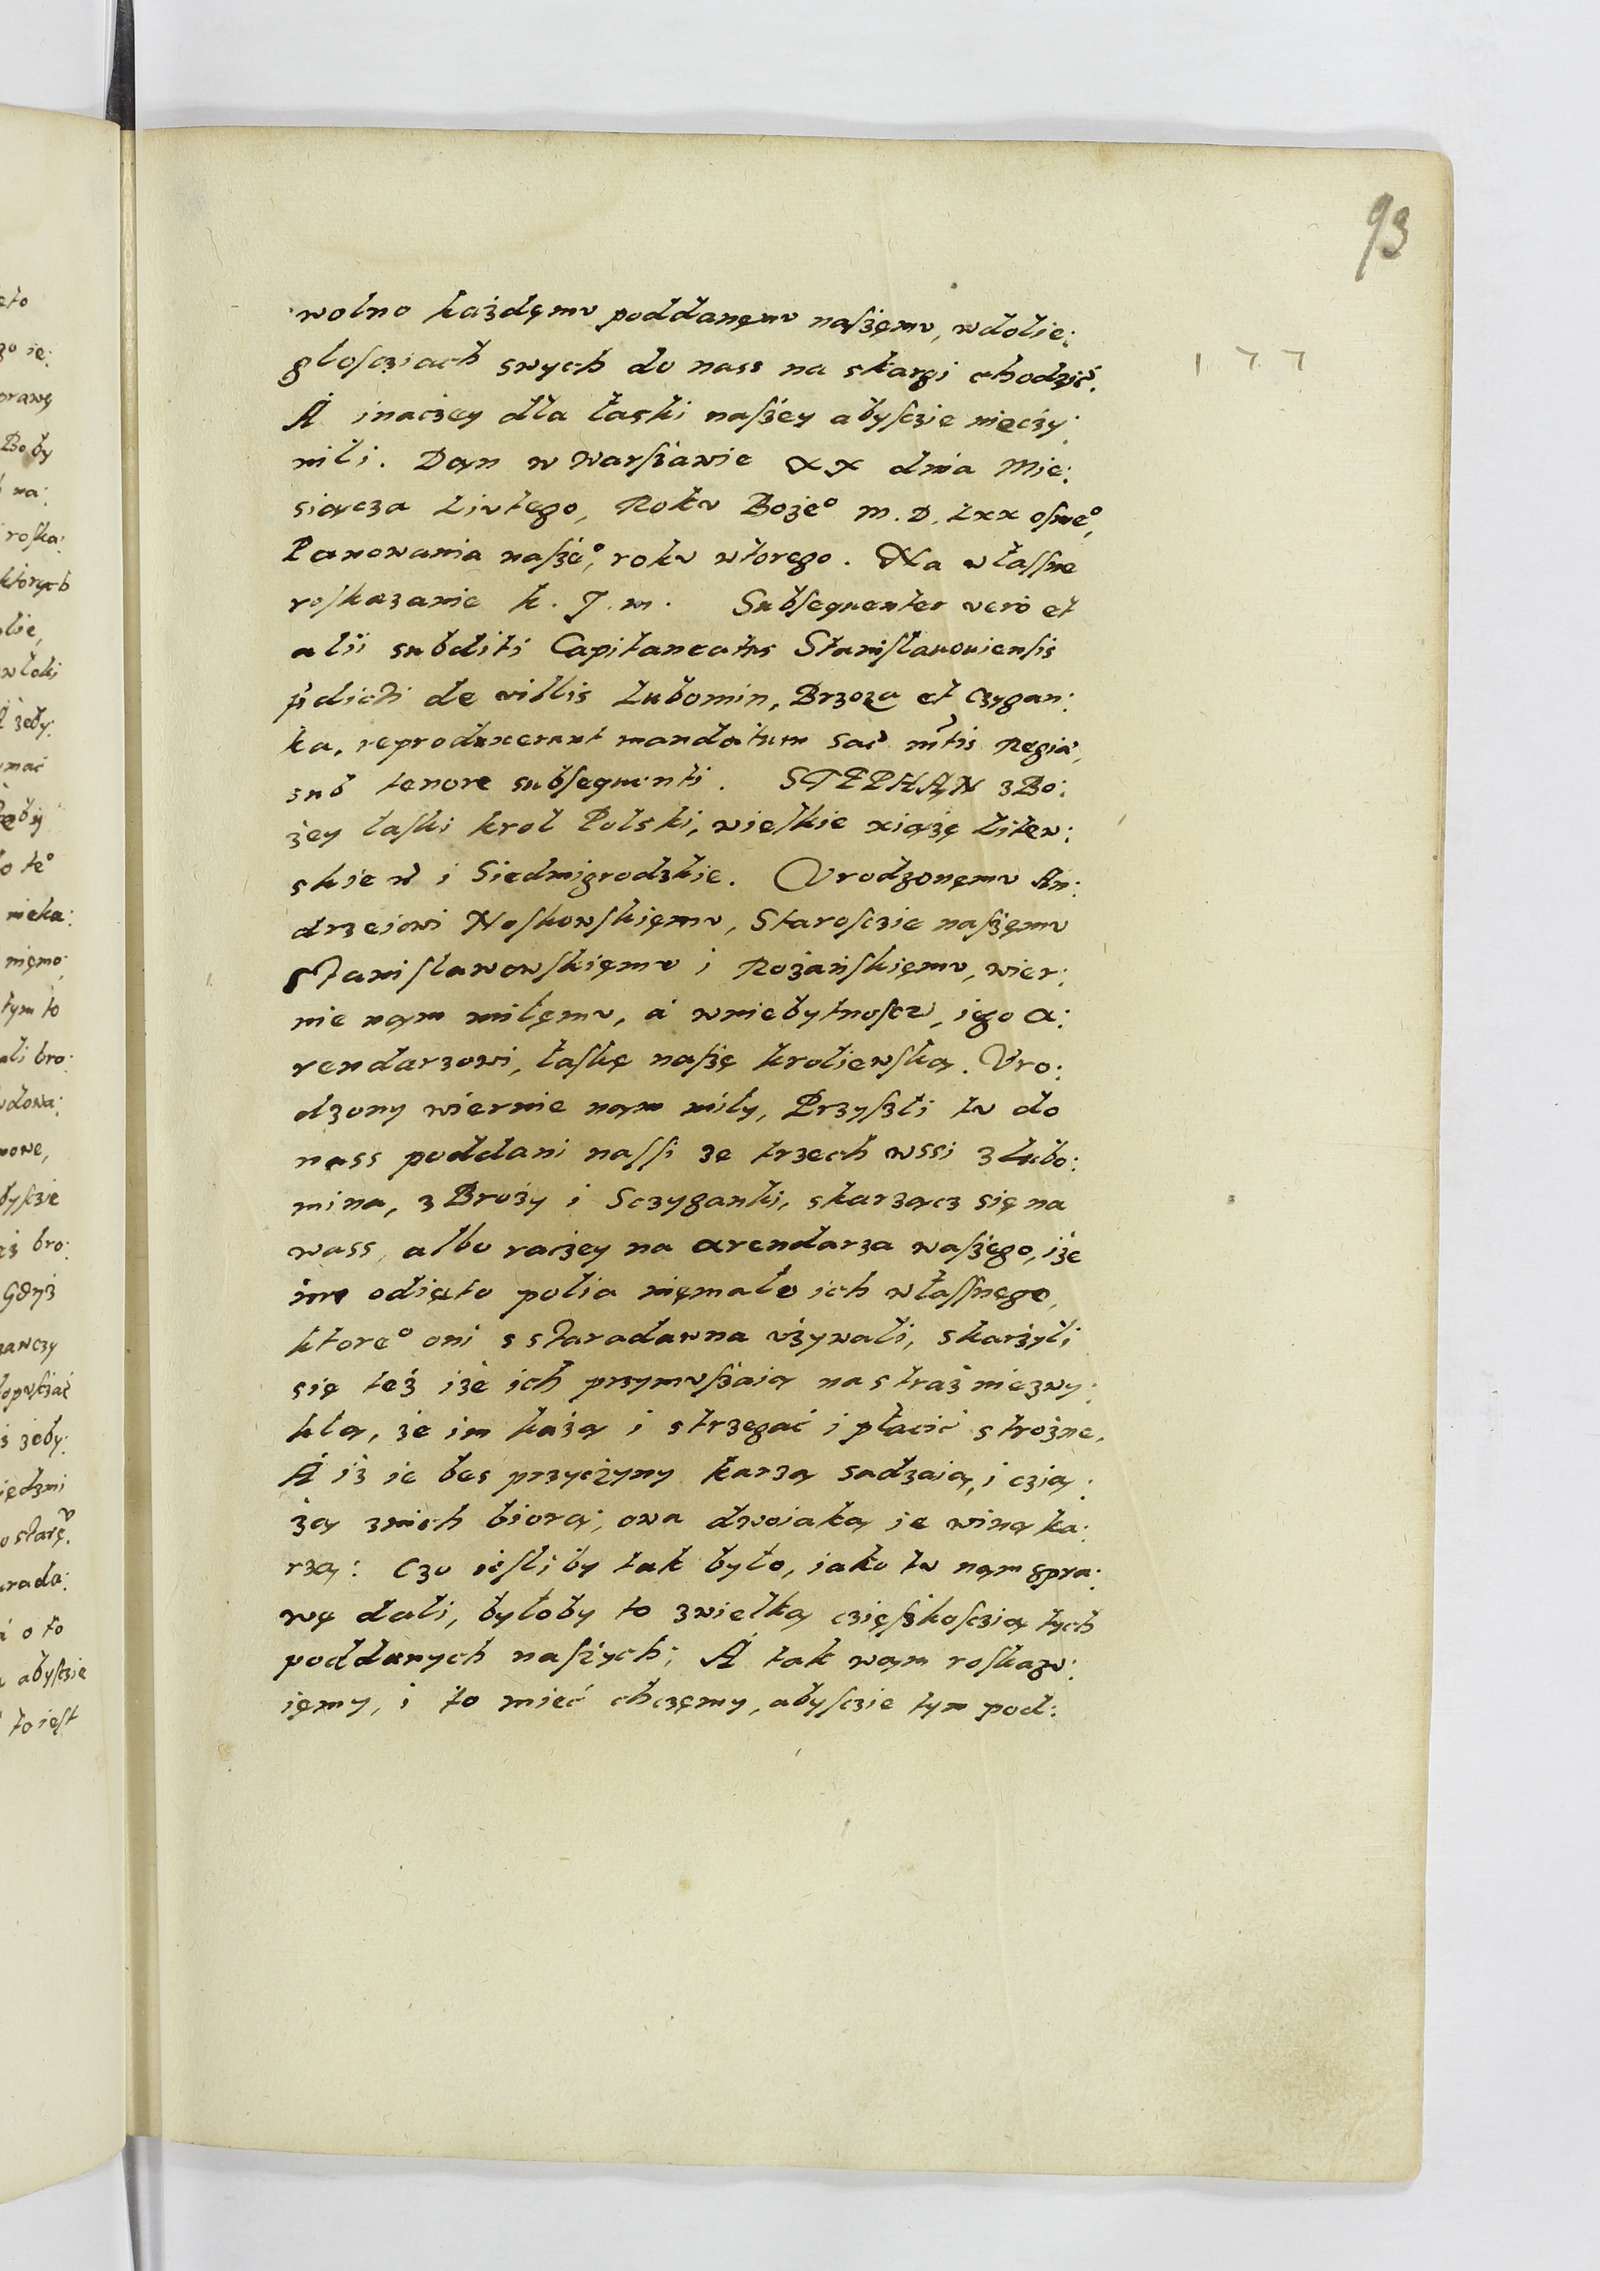 93
wolno każdęmv poddanęmv naſżęmv, wdolie:
gloſcziach swych do nass na skargi chodzić.
A inaczey dla łaski naſżey abyſczie nieczy:
nili. Dan w Warſzawie XX dnia Mie:
siącza Liutego, Rokv Bożeº M.D.Lxx oſmeº,
Panowania naſzeº, rokv wtorego. Na wlaſne
roſkazanie k. J. m. Subſequenter vero et
alii subditi Capitaneatus Staniſlauouienſis
pdicti de villis Lubomin, Brzoza et Czygan:
ka, reproduxerunt mandatum Sac mtis Regiae,
sub tenore subſequenti. STEPHAN z Bo:
żey łaſki krol Polski, wielkie xiążę Litew:
skie i Siedmigrodzkie. Vrodzonęmv An:
drzeiowi Noſkowſkięmv, Staroſczie naſżęmv
Staniſlawowſkięmv i Rożańſkięmv, wier:
nie nam miłęmv, a wniebytnoſcz iego a:
rendarzowi, łaſkę naſżę kroliewſką. Vro:
dzony wiernie nam miły, Przyſzli tv do
nass poddani naſſi ze trzech wssi z Lubo:
mina, z Broży i Sczyganki, skarżącz się na
wass, albo raczey na arendarza waſzego, iże
im odięto polia nięmało ich wlaſſnęgo,
ktoręº oni sstaradawna vżywali, skarżyli
się też iże ich przymvſzaią na straż niezwy:
kłą, że im każą i strzegać i płacić strożne.
A iż ie bes przyczyny karzą sadzaią, i czią:
żą znich biorą, owa dwoiaką ie winą ka:
rzą: Czo ieſliby tak było, iako tv nam spra:
wę dali, byłoby to zwielką cziężkoſczią tych
poddanych naſzych; A tak wam roſkazv:
ięmy, i to mieć chczęmy, abyſczie tym pod: